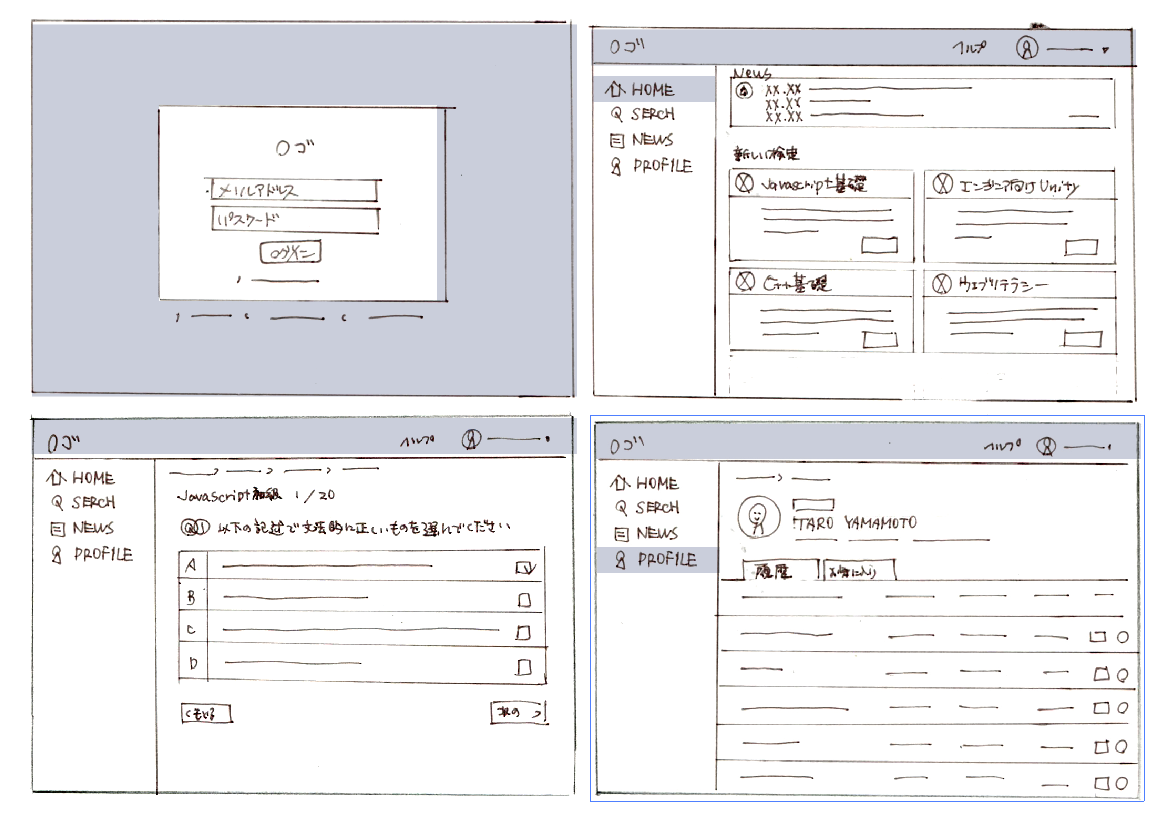 ロゴ
メールアドレス
パスワード
ログイン
ロゴ ヘルプ
HOME
SERCH
NEWS
PROFILE
News
XX.XX
XX.XX
XX.XX
新しい検定
Javascript基礎
エンジニア向けUnity
C++基礎
ウェブリテラシー
ロゴ ヘルプ
HOME
SERCH
NEWS
PROFILE
Javascript初級 1/20
Q1 以下の記述で文法的に正しいものを選んでください
A
B
C
D
<もどる
次の >
ロゴ ヘルプ
HOME
SERCH
NEWS
PROFILE
TARO YAMAMOTO
履歴 お気に入り